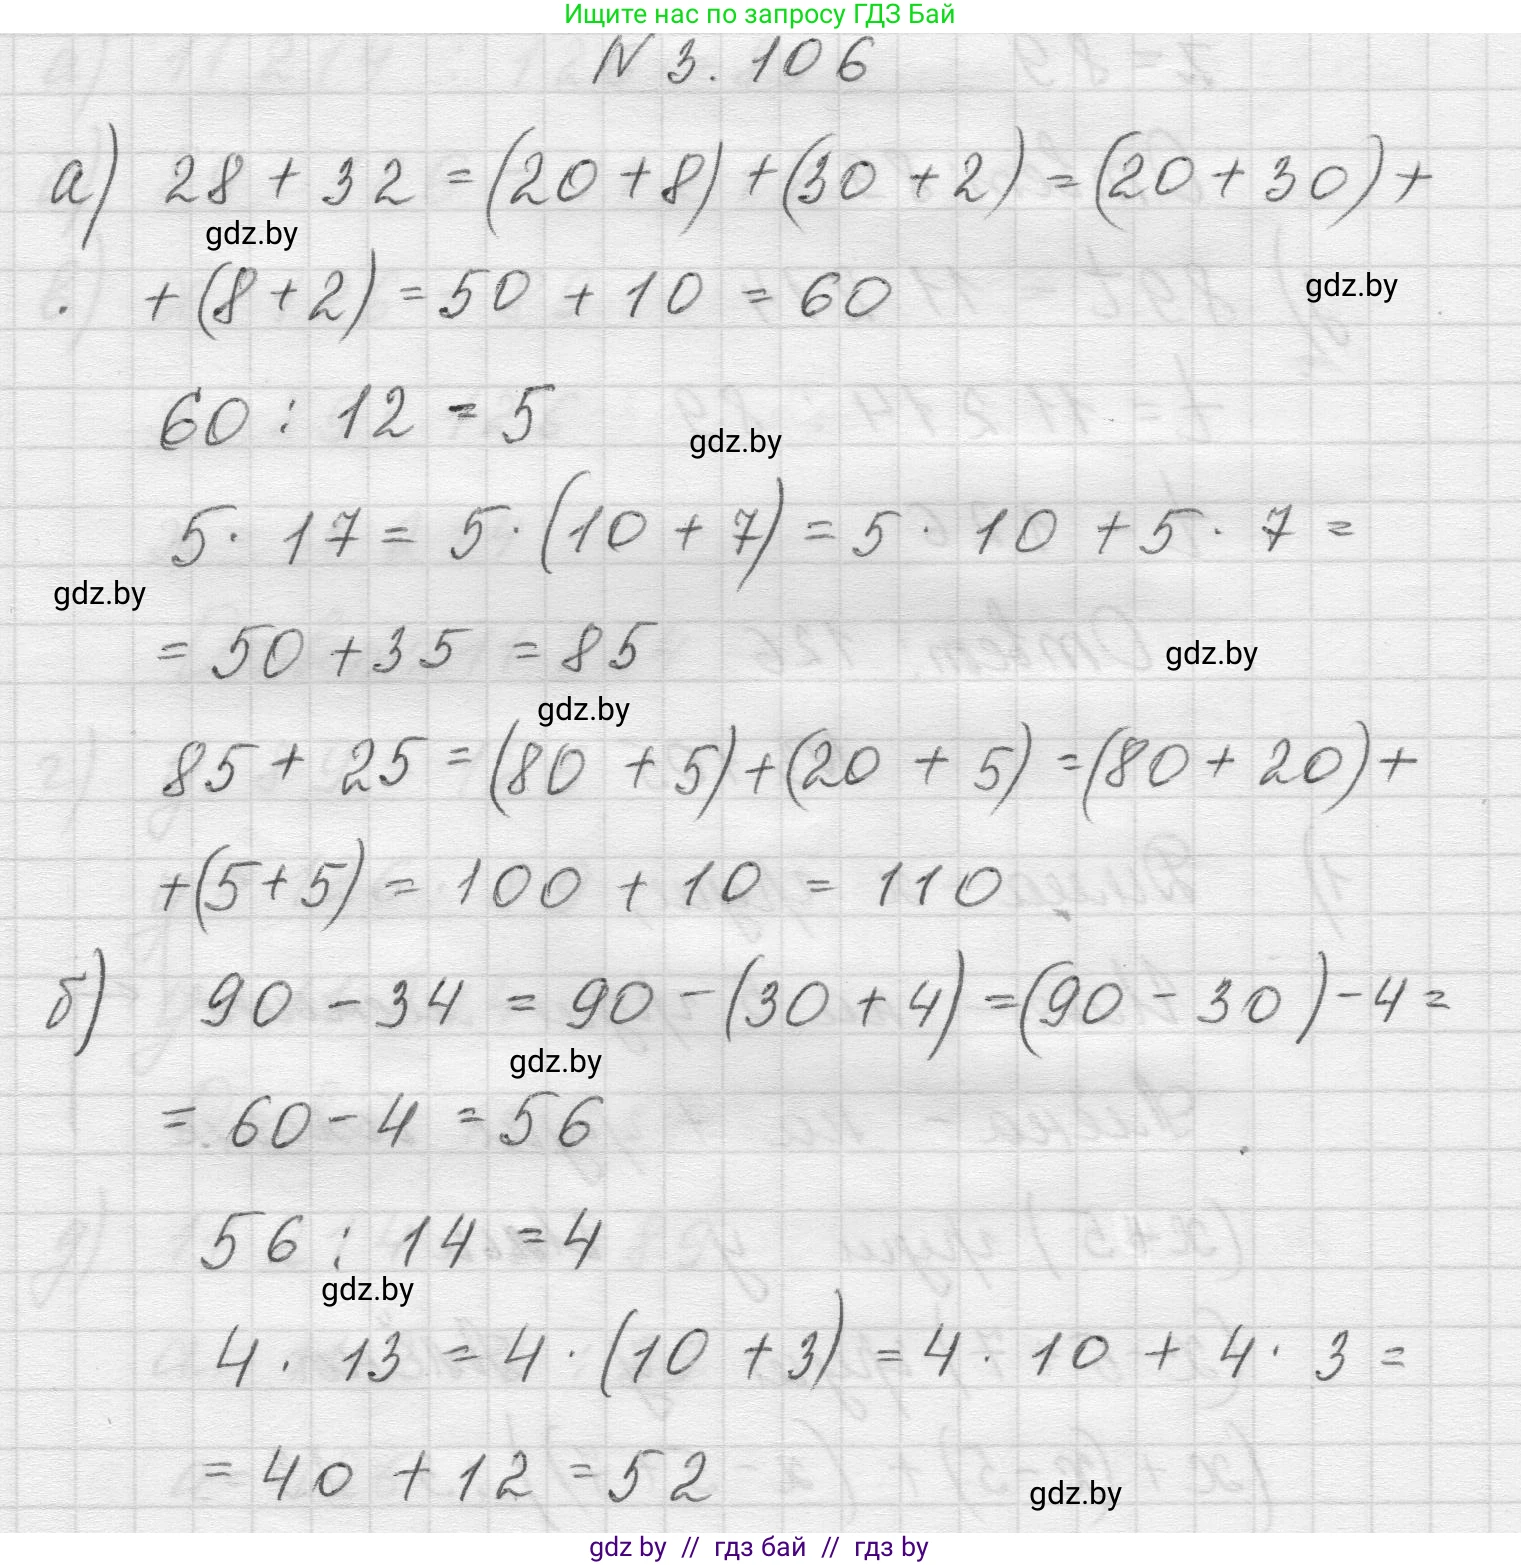 Ищите нас по запросу ГДЗ Бай
N 3.106
а) 28 + 32 = (20 + 8) + (30 + 2) = (20 + 30) +
gdz.by
+ (8 + 2) = 50 + 10 = 60
gdz.by
60 : 12 = 5
gdz.by
5 · 17 = 5 · (10 + 7) = 5 · 10 + 5 · 7 =
gdz.by
= 50 + 35 = 85
gdz.by
gdz.by
85 + 25 = (80 + 5) + (20 + 5) = (80 + 20) +
+ (5 + 5) = 100 + 10 = 110
б) 90 - 34 = 90 - (30 + 4) = (90 - 30) - 4 =
gdz.by
= 60 - 4 = 56
56 : 14 = 4
gdz.by
4 · 13 = 4 · (10 + 3) = 4 · 10 + 4 · 3 =
= 40 + 12 = 52
gdz.by
gdz by // гдз бай // гдз by